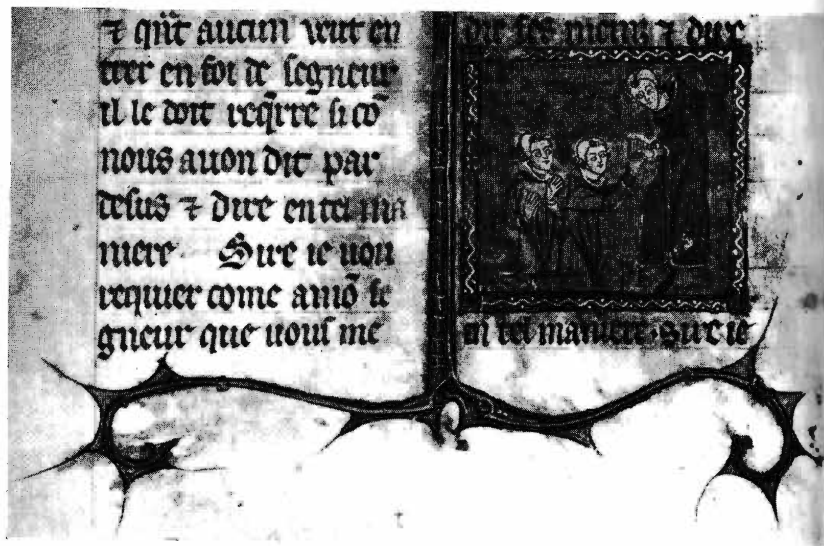 ⁊ qñt aucun veut en
trer en foi de segneur
il le doit reqͥrre si cō
nous auon dit par
desus ⁊ dire en tel ma
niere Sire ie uou
requier come amō se
gneur que uous me
dit ses mein ⁊ dire
en tel maniere. Sire ie